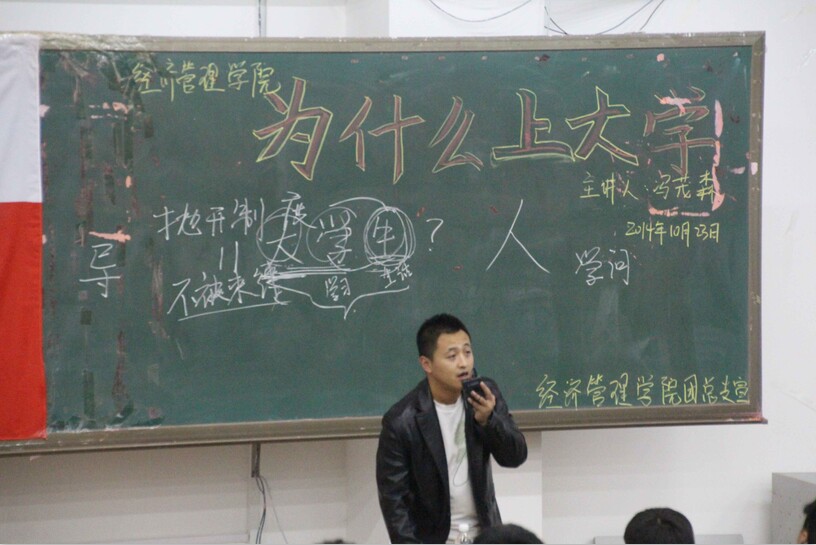 经济管理学院
为什么上大学
主讲人 冯茂森
2014年10月23日
抛开制度
大学生？
人
学问
导
||
不被束缚
学习
生活
经济管理学院团总支宣